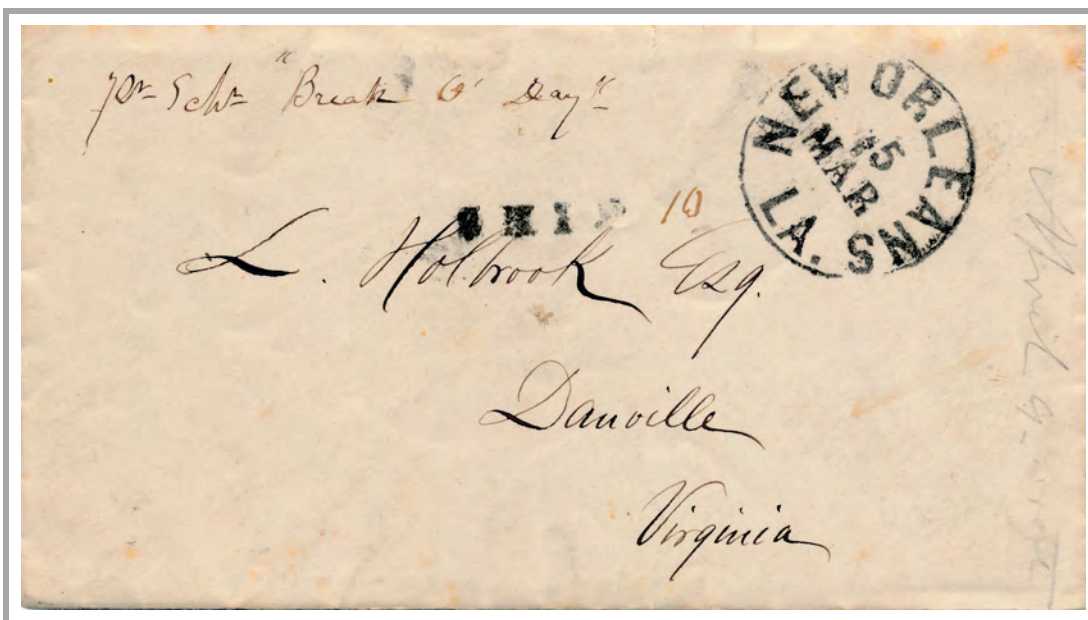 pr Schr "Break O' Day"
NEW ORLEANS
15
MAR
LA.
SHIP 10
L. Holbrook Esq.
Danville
Virginia
April 9-wrote